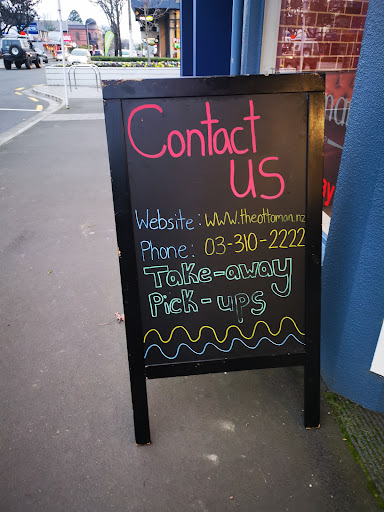 Contact
us
Website: www.theottoman.nz
Phone: 03-310-2222
Take-away
Pick-ups